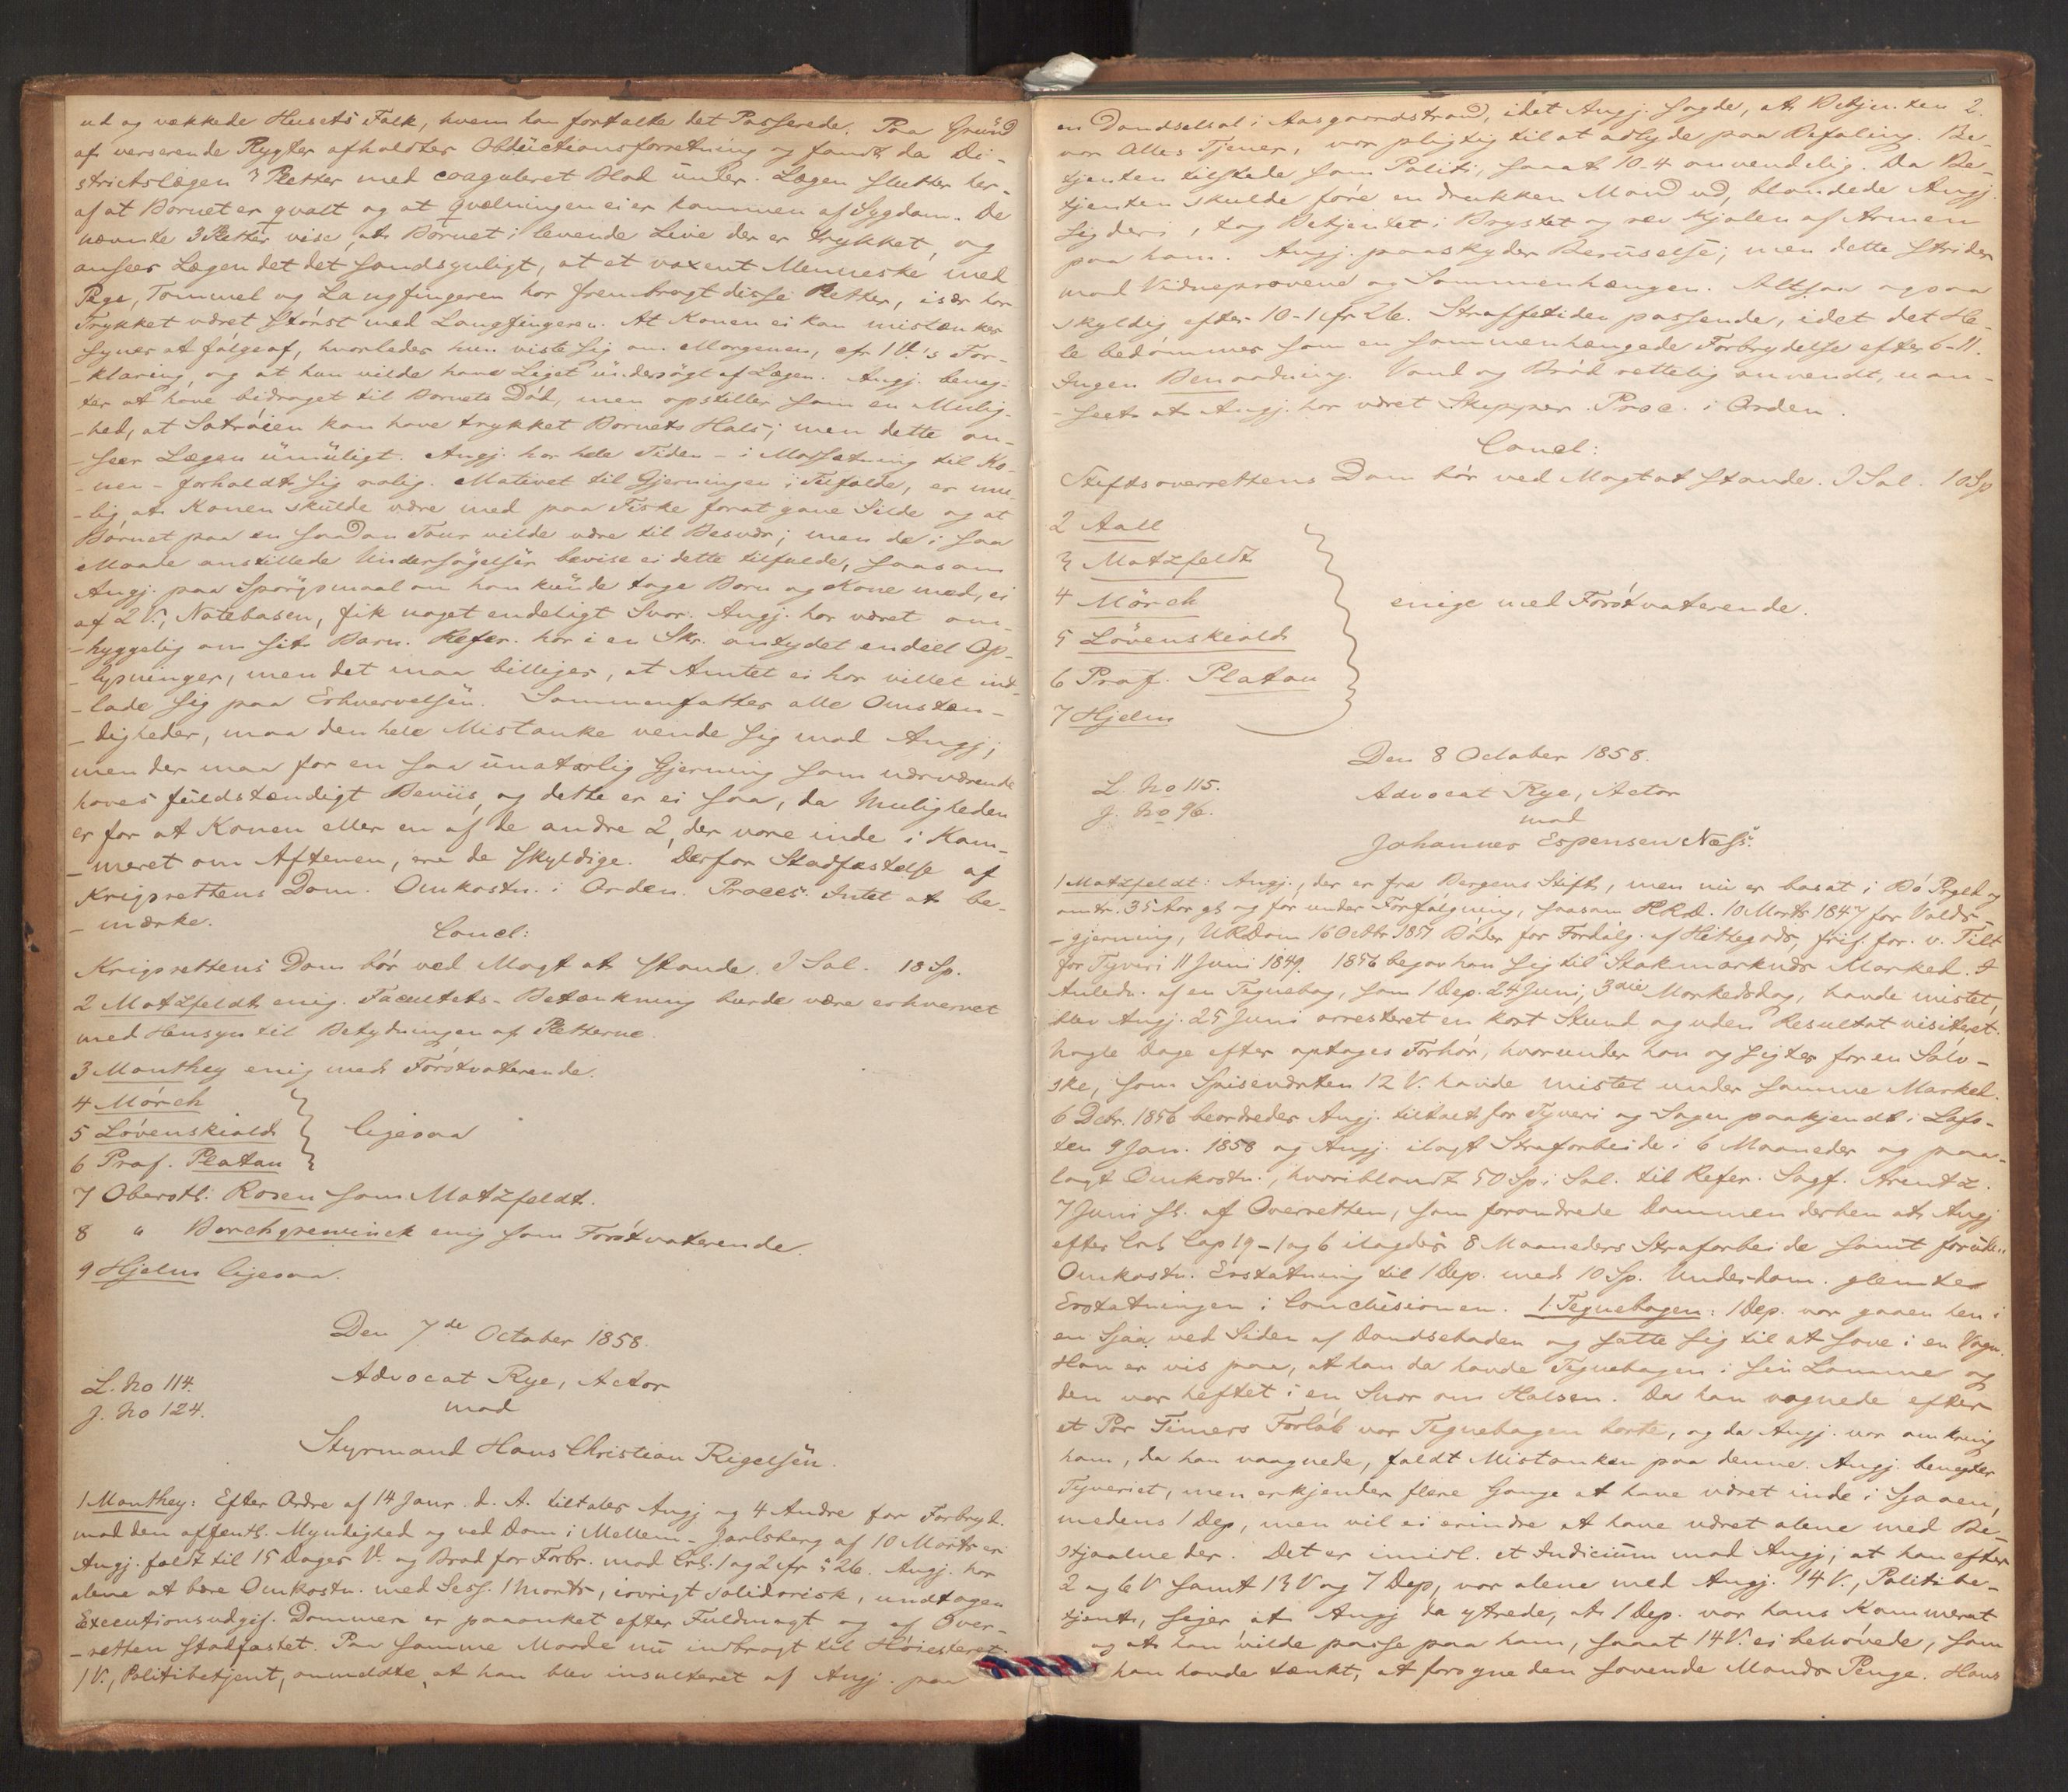 ud og vækkede Husets Folk, hvem han fortalte det Passerede. Paa Grund
af verserende Rygter afholdtes Obductionsforretning og fandt da Di-
strictslægen 3 Pletter med coaguleret Blod under. Lægen slutter her-
af at Barnet er qvalt og at Qvælningen ei er kommen af Sygdom. De
nævnte 3 Pletter vise, at Barnet i levende Live der er trykket, og
ansees Lægen det det sandsynligt, at et voxent Menneske med
Pege, Tommel og Langfingeren har frembragt disse Pletter, især har
Trykket været størst med Langfingeren. At Konen ei kan mistænkes
synes at følge af, hvorledes hun viste sig om Morgenen, cfr 1 V's For-
-klaring og at hun vilde have Liget undersøgt af Lægen. Angj. beneg-
ter at have bidraget til Barnets Død, men opstiller som en Mulig-
-hed, at Satrøien kan have trykket Barnets Hals; men dette an-
-seer Lægen umuligt. Angj. har hele Tiden - i Modsætning til Ko-
-nen - forholdt sig rolig. Motivet til Gjerningen i Tilfælde, er mu-
-lig, at Konen skulde være med paa Fiske forat gane Silde og at
Barnet paa en saadan Tour vilde være til Besvær; men de i saa
Maade anstillede Undersøgelser bevise ei dette tilfulde, saasom
Angj. paa Spørgsmaal om han kunde tage Barn og Kone med, ei
af 2 V., Notebasen, fik noget endeligt Svar. Angj. har været om-
-hyggelig om sit Barn. Refer. har i en Skr. antydet endeel Op-
-lysninger, men det maa billiges, at Amtet ei har villet ind-
-lade sig paa Erhvervelsen. Sammenfattes alle Omstæn-
-digheder, maa den hele Mistanke vende sig mod Angj;
men der maa for en saa unaturlig Gjerning som nærværende
haves fuldstændigt Beviis, og dette er ei saa, da Muligheden
er for at Konen eller en af de andre 2, der vare inde i Kam-
-meret om Aftenen, ere de skyldige. Derfor Stadfæstelse af
Krigsrettens Dom. Omkostn. i Orden. Proces. Intet at be-
-mærke.
Concl:
Krigsrettens Dom bør ved Magt at stande. I Sal. 18 Sp.
2 Motzfeldt enig. Facultets-Betænkning burde være erhvervet
med Hensyn til Betydningen af Pletterne.
3 Manthey enig med Førstvoterende.
4 Mörch
5 Lövenskiold
ligesaa
6 Prof. Platou
7 Oberstl: Rosen som Motzfeldt.
8 " Borchgrewinck enig som Førstvoterende.
9 Hjelm ligesaa.
Den 7de October 1858.
L. No 114.
Advocat Rye, Actor
J. No 124.
mod
Styrmand Hans Christian Rigelsen.
1 Manthey: Efter Ordre af 14 Janr. d. A. tiltales Angj og 4 Andre for Forbryd.
mod den offentl. Myndighed og ved Dom i Mellem-Jarlsberg af 10 Marts er
Angj. fældt til 15 Dages V. og Brød for Forbr. mod Crl. 1 og 2 cfr § 26. Angj. har
alene at bære Omkostn. med Sess. 1 Marts, iøvrigt solidarisk, undtagen
Executionsudgif. Dommen er paaanket efter Fuldmagt og af Over-
-retten stadfæstet. Paa samme Maade nu indbragt til Høiesteret
1 V., Politibetjent, anmeldte, at han blev insulteret af Angj. paa
en Dandsesal i Aasgaardstrand, idet Angj. sagde, at Betjenten 2.
var Alles Tjener, var pligtig til at adlyde paa Befaling. Be-
tjenten tilstede som Politi, saaat 10-4 anvendelig. Da Be-
tjenten skulde føre en drukken Mand ud, blandede Angj.
sig deri, tog Betjentet i Brystet og rev Kjolen af Armen
paa ham. Angj. paaskyder Beruselse; men dette strider
mod Vidneprovene og Sammenhængen. Altsaa ogsaa
skyldig efter 10-1 cfr 26. Straffetiden passende, idet det He-
le bedømmes som en sammenhængede Forbrydelse efter 6-11.
Ingen Benaadning. Vand og Brød rettelig anvendt, uan-
-seet at Angj. har været Skipper. Proc. i Orden.
Concl:
Stiftsoverrettens Dom bør ved Magt at stande. I Sal. 10 Sp
2 Aall
3 Motzfeldt
4 Mörch
enige med Førstvoterende.
5 Lövenskiold
6 Prof. Platou
7 Hjelm
Den 8 October 1858.
L. No 115.
Advocat Rye, Actor
J. No 96.
mod
Johannes Espensen Næss.
1 Motzfeldt: Angj., der er fra Bergens Stift, men nu er bosat i Bø Prgld og
omtr. 35 Aar gl. og før under Forfølgning, saasom HRd. 10 Marts 1847 for Volds-
-gjerning, URDom 16 Octbr 1851 Bøder for Fordølg. af Hittegods, frif. for. v. Tilt
for Tyveri 11 Juni 1849. 1856 begav han sig til Stokmarknæs Marked. I
Anledn. af en Tegnebog, som 1 Dep. 24 Juni, 3die Markedsdag, havde mistet,
blev Angj. 25 Juni arresteret en kort Stund og uden Resultat visiteret.
Nogle Dage efter optages Forhør, hvorunder han og sigtes for en Sølv-
ske, som Spiseværten 12 V. havde mistet under samme Marked.
6 Decbr. 1856 beordredes Angj. tiltalt for Tyveri og Sagen paakjendt i Lofo-
ten 9 Jan. 1858 og Angj. ilagt Strafarbeide i 6 Maaneder og paa-
lagt Omkostn., hvoriblandt 50 Sp i Sal. til Refer. Sagf. Arentz.
7 Juni gl. af Overretten, som forandrede Dommen derhen at Angj
efter Crl. Cap 19-1 og 6 ilagdes 8 Maaneders Strafarbeide samt foruden
Omkostn. Erstatning til 1 Dep. med 10 Sp. Underdom. glemte
Erstatningen i Conclusionen. 1. Tegnebogen: 1 Dep. var gaaen hen i
en Sjaa ved Siden af Dandseboden og satte sig til at sove i en Vogn.
Han er vis paa, at han da havde Tegnebogen i sin Lomme og
den var heftet i en Snor om Halsen. Da han vognede efter
et Par Timers Forløb var Tegnebogen borte, og da Angj. var omkring
ham, da han vaagnede, faldt Mistanken paa denne. Angj. benegter
Tyveriet, men erkjender flere Gange at have været inde i Sjaaen,
medens 1 Dep, men vil ei erindre at have været alene med Be-
stjaalne der. Det er imidl. et Indicium mod Angj, at han efter
2 og 6 V samt 13 V og 7 Dep, var alene med Angj. 14 V., Politibe-
tjent, siger at Angj da ytrede, at 1 Dep. var hans Kammerat
og at han vilde passe paa ham, saaat 14 V. ei behøvede, som
han havde tænkt, at forsyne den sovende Mands Penge. Hans